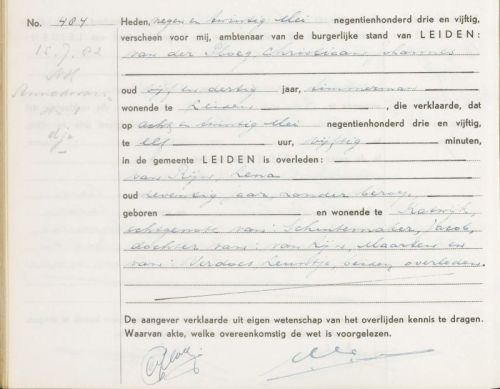 No. 404 Heden, negen en twintig Mei negentienhonderd drie en vijftig,
verscheen voor mij, ambtenaar van de burgerlijke stand van LEIDEN:
van der Ploeg, Christiaan, Johannes
oud vijf en dertig jaar, timmerman
wonende te Leiden, die verklaarde, dat
op acht en twintig Mei negentienhonderd drie en vijftig,
te elf uur, vijftig minuten,
in de gemeente LEIDEN is overleden:
van Rijn, Lena
oud zeventig jaar, zonder beroep,
geboren en wonende te Katwijk,
echtgenote van: Schuitemaker, Jacob,
dochter van: van Rijn, Maarten en
van: Verdoes, Leuntje, beiden overleden.
De aangever verklaarde uit eigen wetenschap van het overlijden kennis te dragen.
Waarvan akte, welke overeenkomstig de wet is voorgelezen.